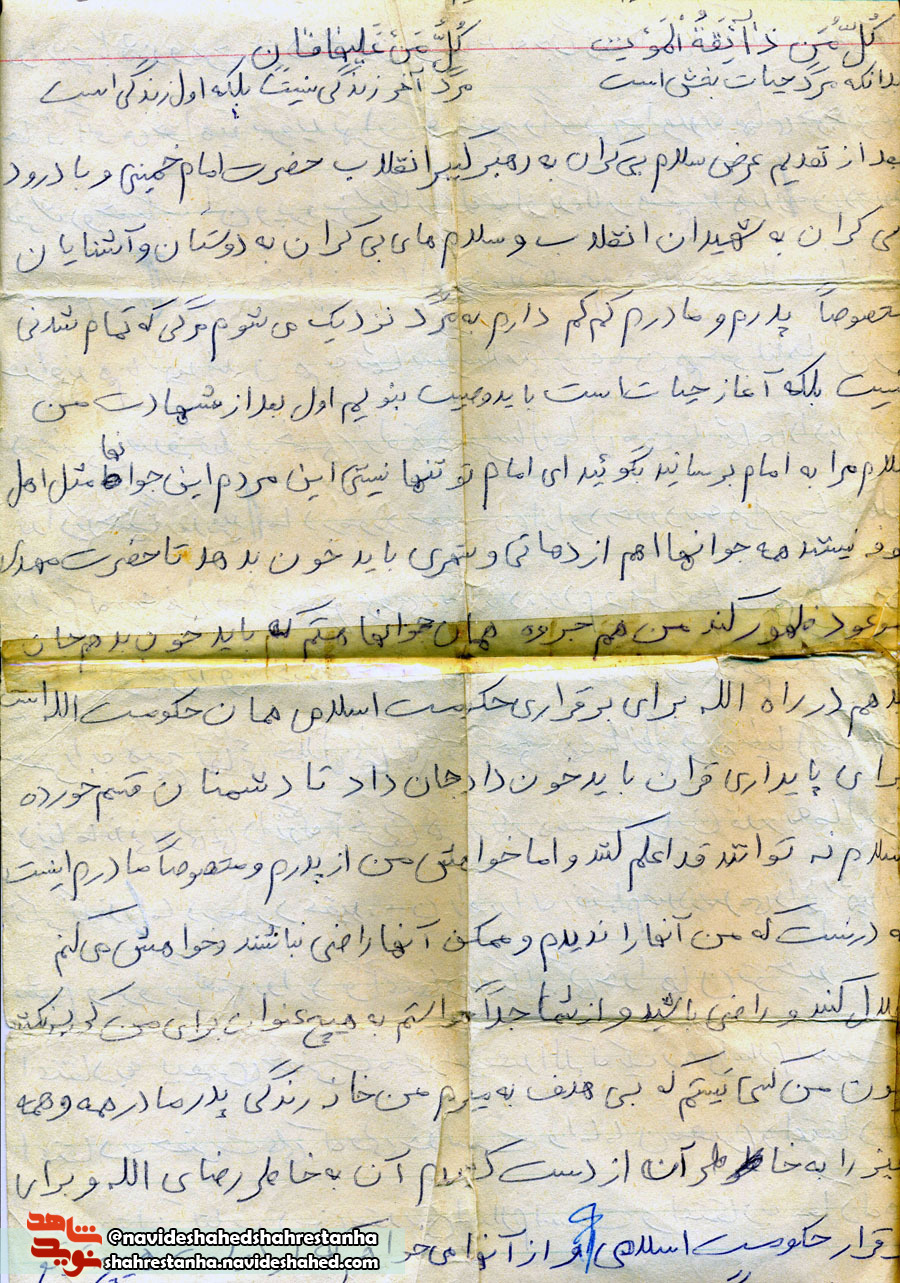 کُلُّ مَن ذائِقَةُ الْمَوْت کُلُّ مَنْ عَلَیها فان
بدانکه مرگ حیات بخش است مرگ آخر زندگی نیست بلکه اول زندگی است
بعد از تقدیم عرض سلام بی کران به رهبر کبیر انقلاب حضرت امام خمینی و با درود
بی کران به شهیدان انقلاب و سلام های بی کران به دوستان و آشنایان
مخصوصاً پدرم و مادرم کم کم دارم به مرگ نزدیک می شوم مرگی که تمام شدنی
نیست بلکه آغاز حیات است باید وصیت بنویسم اول بعد از شهادت من
سلام مرا به امام برسانید بگوئید ای امام تو تنها نیستی این مردم این جوانها مثل اهل
کوفه نیستند همه جوانها اهم از دهاتی و شهری باید خون بدهد تا حضرت مهدی
موعود ظهور کند من هم جزوه همان جوانها هستم که باید خون بدهم جان
بدهم در راه الله برای برقراری حکومت اسلامی همان حکومت الله است
برای پایداری قران باید خون داد جان داد تا دشمنان قسم خورده
اسلام نه توانند قد اعلم کنند و اما خواهش من از پدرم و مخصوصاً مادرم اینست
که درست که من آنها را ندیدم و ممکن آنها راضی نباشند و خواهش می کنم
حلال کنند و راضی باشید و از شما جداً خواستم به هیچ عنوان برای من گریه نکنند
چون من کسی نیستم که بی هدف به میرم من خانه زندگی پدر مادر همه و همه
چیز را به خاطر آن از دست کشیدم آن به خاطر رضای الله و برای
برقرار حکومت اسلامی و از آنها می
شاهد نوید
@navideshahedshahrestanha
shahrestanha.navideshahed.com